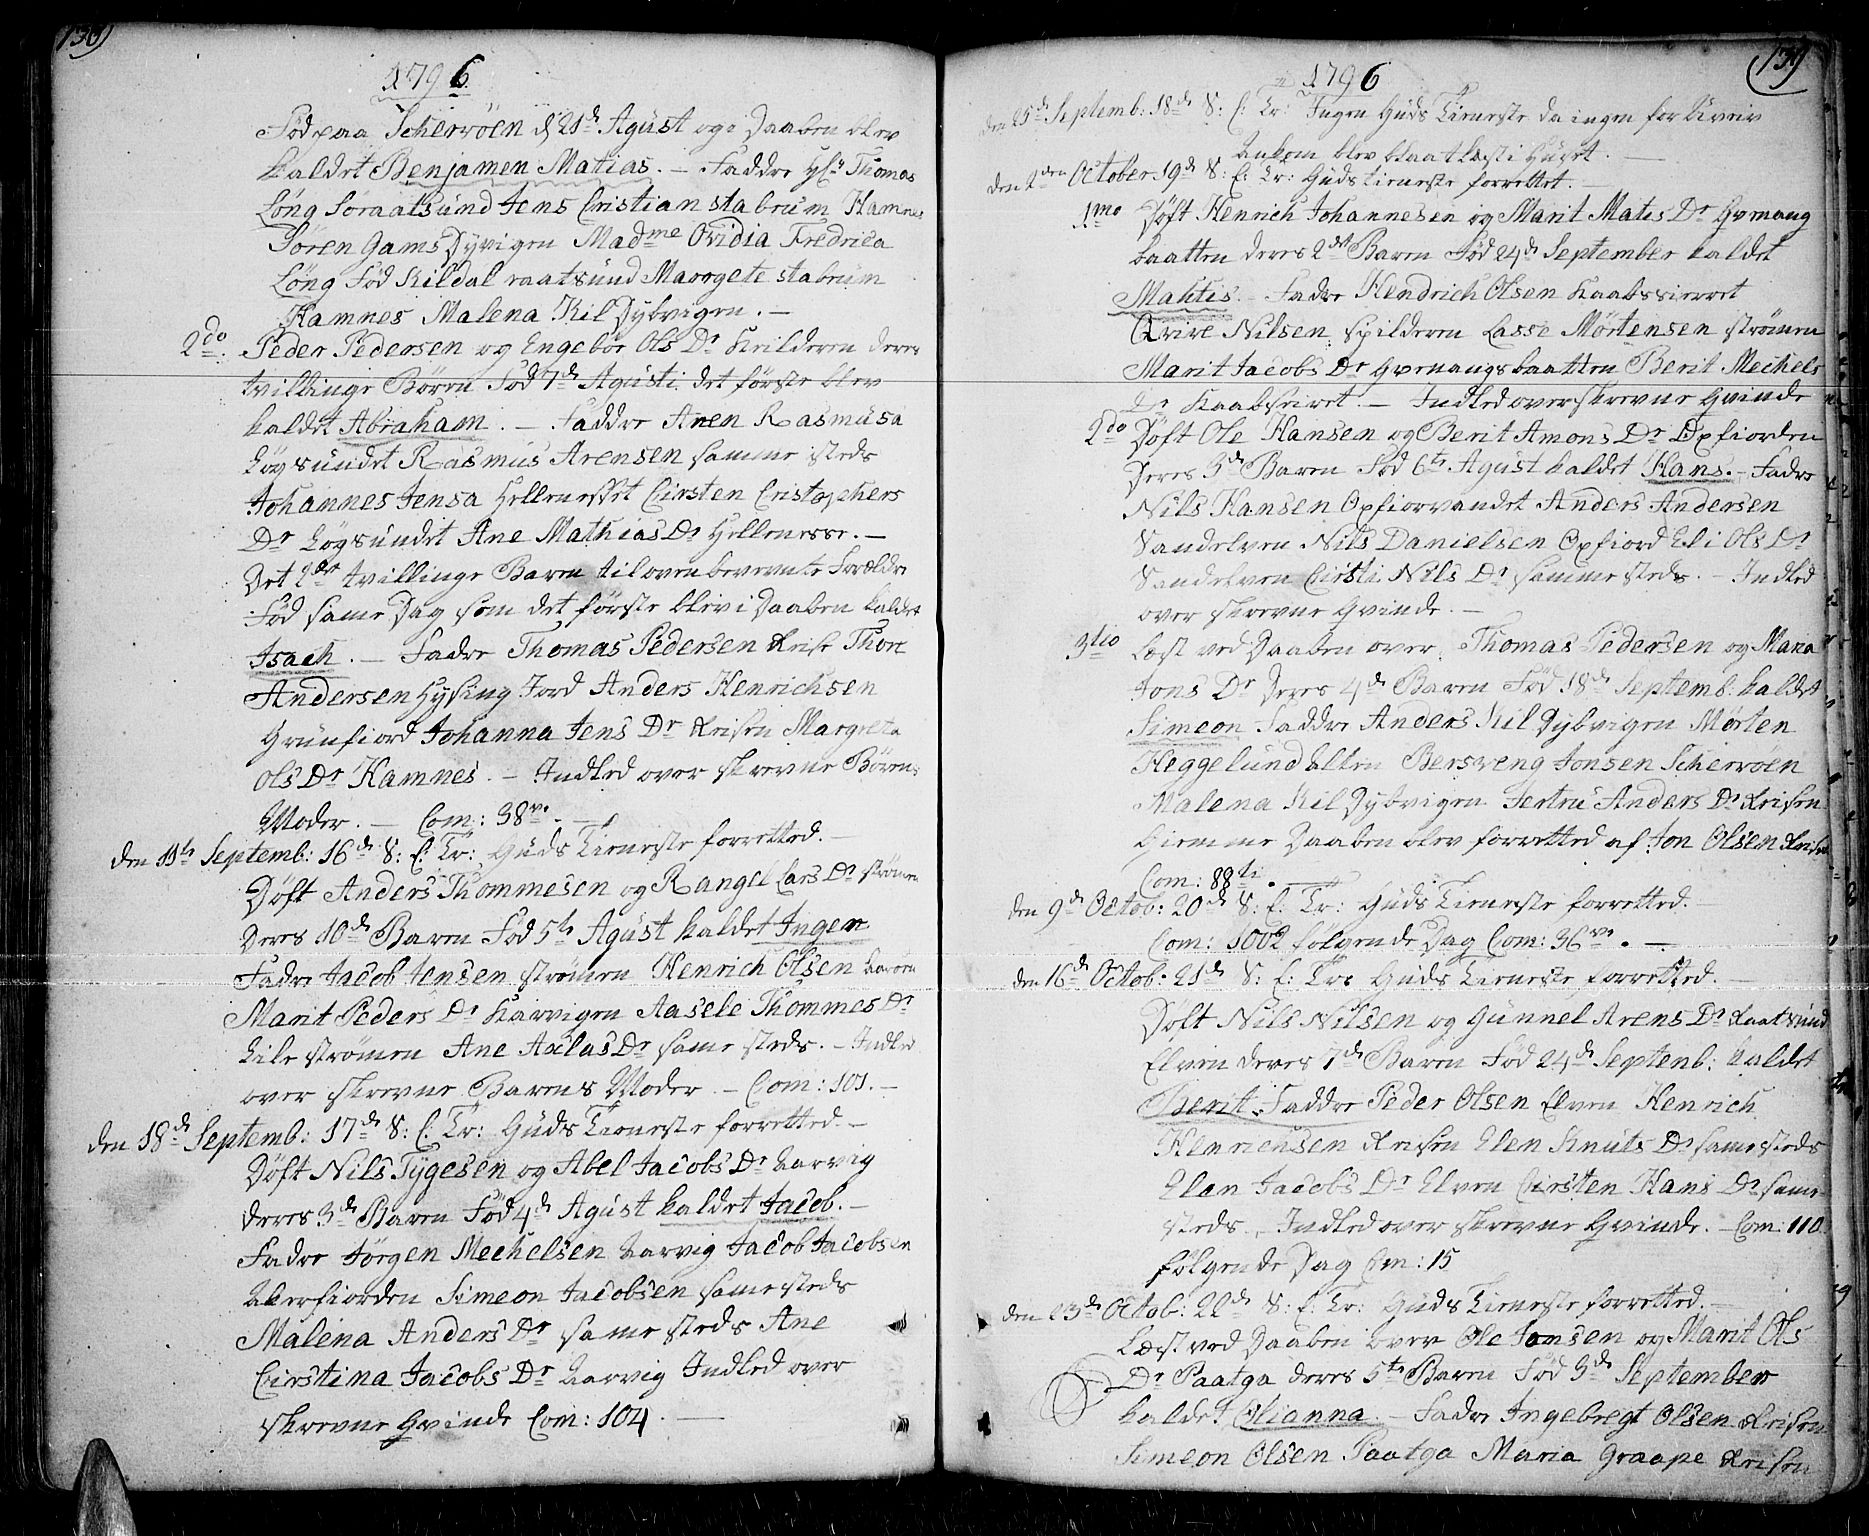 138)
1796
Föd paa Scherröen d. 21de Agust og i Daaben blev
kaldet Benjamen Matias. - Faddre Thomas
Löng Söraatsund Jens Cristian stabrum Hamnes
Sören Gams Dyvigen Madme Ovidia Fredrica
Löng Föd Kildal raatsund Marrgete stabrum
Hamnes Malena Kil Dybvigen. -
2do Peder Pedersen og Engebor Ols Dr Keilderen deres
tvillinge Börn Föd 7de Agusti det förste blev
kaldet Abraham. - Faddre Anen Rasmusa
Lögsundet Rasmus Arensen samme steds
Johannes Jensa Hellenesset Cirsten Cristophers
Dr Lögsundet Ane Mathias Dr Hellenesse. -
Det 2det tvillinge Baren til oven bevernte Forældre
Föd same Dag som det förste blev i Daaben kaldet
Isach. - Fadre Thomas Pedersen Reise Thore
Andersen Hysing Jord Anders Henrichsen
Grunfiord Johanna Jens Dr Reisen Margreta
Ols Dr Hamnes. - Indled over skrevne Börens
Moder. - Com: 38ve. -
den 11te Septemb: 16de S: E: Tr: Guds Tieneste forretted. -
Döft Anders Thommesen og Rangel Lars Dr strömen
Deres 10de Baren Föd 5te Agust kaldet Ingen
Fadre Jacob Jensen strömen Henrich Olsen
Marit Peders Dr Karvigen Aasele Thommes Dr
Lile strömen Ane Axlas Dr same steds. - Indled
over skrevne Barens Moder - Com: 101. -
den 18de Septemb: 17de S: E: Tr: Guds Tieneste forretted. -
Döft Nils Tygesen og Abel Jacobs Dr Uarvig
deres 3de Baren Föd 4de Agust kaldet Jacob. -
Fadre Jörgen Mechelsen Uarvig Jacob Jacobsen
Akerfiorden Simeon Jacobsen same steds
Malena Anders Dr same steds Ane
Cirstina Jacobs Dr Uarvig Indled over
skrevne Gvinde Com: 104. -
(139
1796
den 25de Septemb: 18de S: E: Tr: Ingen Guds Tieneste da ingen for Uveir
Ankom blev blaat læst i Huset. -
den 2den October 19de S: E: Tr: Guds tieneste forrettet. -
1mo Döft Henrich Johannesen og Marit Matis Dr Gvenang
baatten deres 2det Baren Föd 24de September kaldet
Mahtis. - Fadre Hendrich Olsen Kaabssierret
Qvire Nilsen spilderen Lasse Mörtensen strömen
Marit Jacobs Dr Gvenangsbaatten Berit Mechels
Dr Kaabseiret. - Indled over skrevne Gvinde
2do Döft Ole Hansen og Berit Amons Dr Oxfiorden
Deres 3de Baren Föd 6te Agust kaldet Hans. - Fadre
Nils Hansen Oxfiorvandet Anders Andersen
Sandelven Nils Danielsen Oxfiord Eli Ols Dr
Sandelven Cirsti Nils Dr samme steds. - Indled
over skrevne Gvinde. -
3tio Læst ved Daaben over. Thomas Pedersen og Maria
Jons Dr Deres 4de Baren Föd 18de Septemb: kaldet
Simeon Faddre Anders Kil Dybvigen Mörten
Heggelund Elken Bersveng Jonsen Scherröen
Malena Kil Dybvigen Jertru Anders Dr Reisen
Hiemme Daaben blev forretted af Jon Olsen Reisen
Com: 88ti. -
den 9de Octob: 20de S: E: Tr: Guds Tieneste forretted. -
Com: 1002 følgende Dag Com: 36ve. -
den 16de Octob: 21de S: E: Tr: Guds Tieneste forretted. -
Döft Nils Nilsen og Gunnel Arens Dr Raatsund
Elven deres 7de Baren Föd 24de Septenb: kaldet
Berit. Faddre Peder Olsen Elven Henrich
Henrichsen Reisen Elen Knuts Dr same steds
Elen Jacobs Dr Elven Cirsten Hans Dr same
steds. - Indled over skrevne Gvinde. - Com: 110.
følgende Dag Com: 15
den 23de Octob: 22de S: E: Tr: Guds Tieneste forretted. -
Læst ved Daaben over Ole Jonsen og Marit Ols
Dr Paatga deres 5te Baren Föd 3de September
kaldet Olianna. - Fadre Ingebregt Olsen Reisen
Simeon Olsen Paatga Maria Graape Reisen